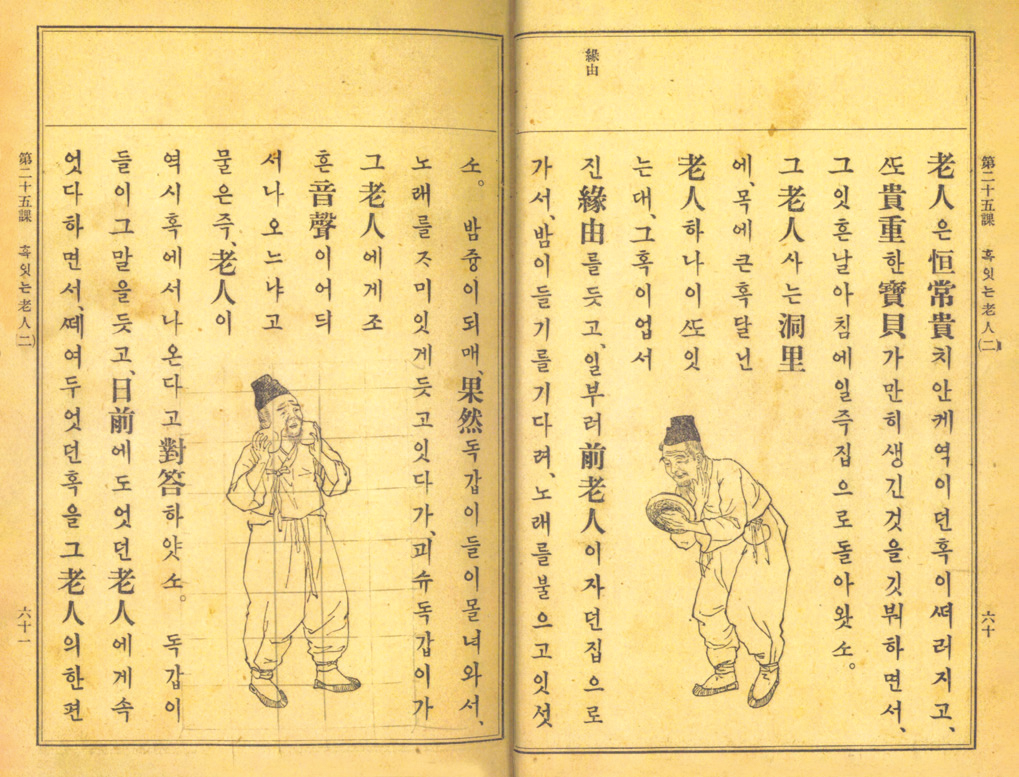 第二十五課 혹잇는老人(二) 六十
緣由
老人은恒常貴치안케역이던혹이ᄯᅥ러지고、
ᄯᅩ貴重한寶貝가만히생긴것을깃붜하면서、
그잇흔날아침에일즉집으로돌아왓소。
그老人사는洞里
에、목에큰혹달닌
老人하나이ᄯᅩ잇
는대、그혹이업서
진緣由를듯고、일부러前老人이자던집으로
가서、밤이들기를기다려、노래를불으고잇섯
소。 밤중이되매、果然독갑이들이몰녀와서、
노래를ᄌᆞ미잇게듯고잇다가、괴슈독갑이가
그老人에게조
흔音聲이어듸
서나오느냐고
물은즉、老人이
역시혹에서나온다고對答하얏소。 독갑이
들이그말을듯고、日前에도엇던老人에게속
엇다하면서、ᄯᅦ여두엇던혹을그老人의한편
第二十五課 혹잇는老人(二) 六十一